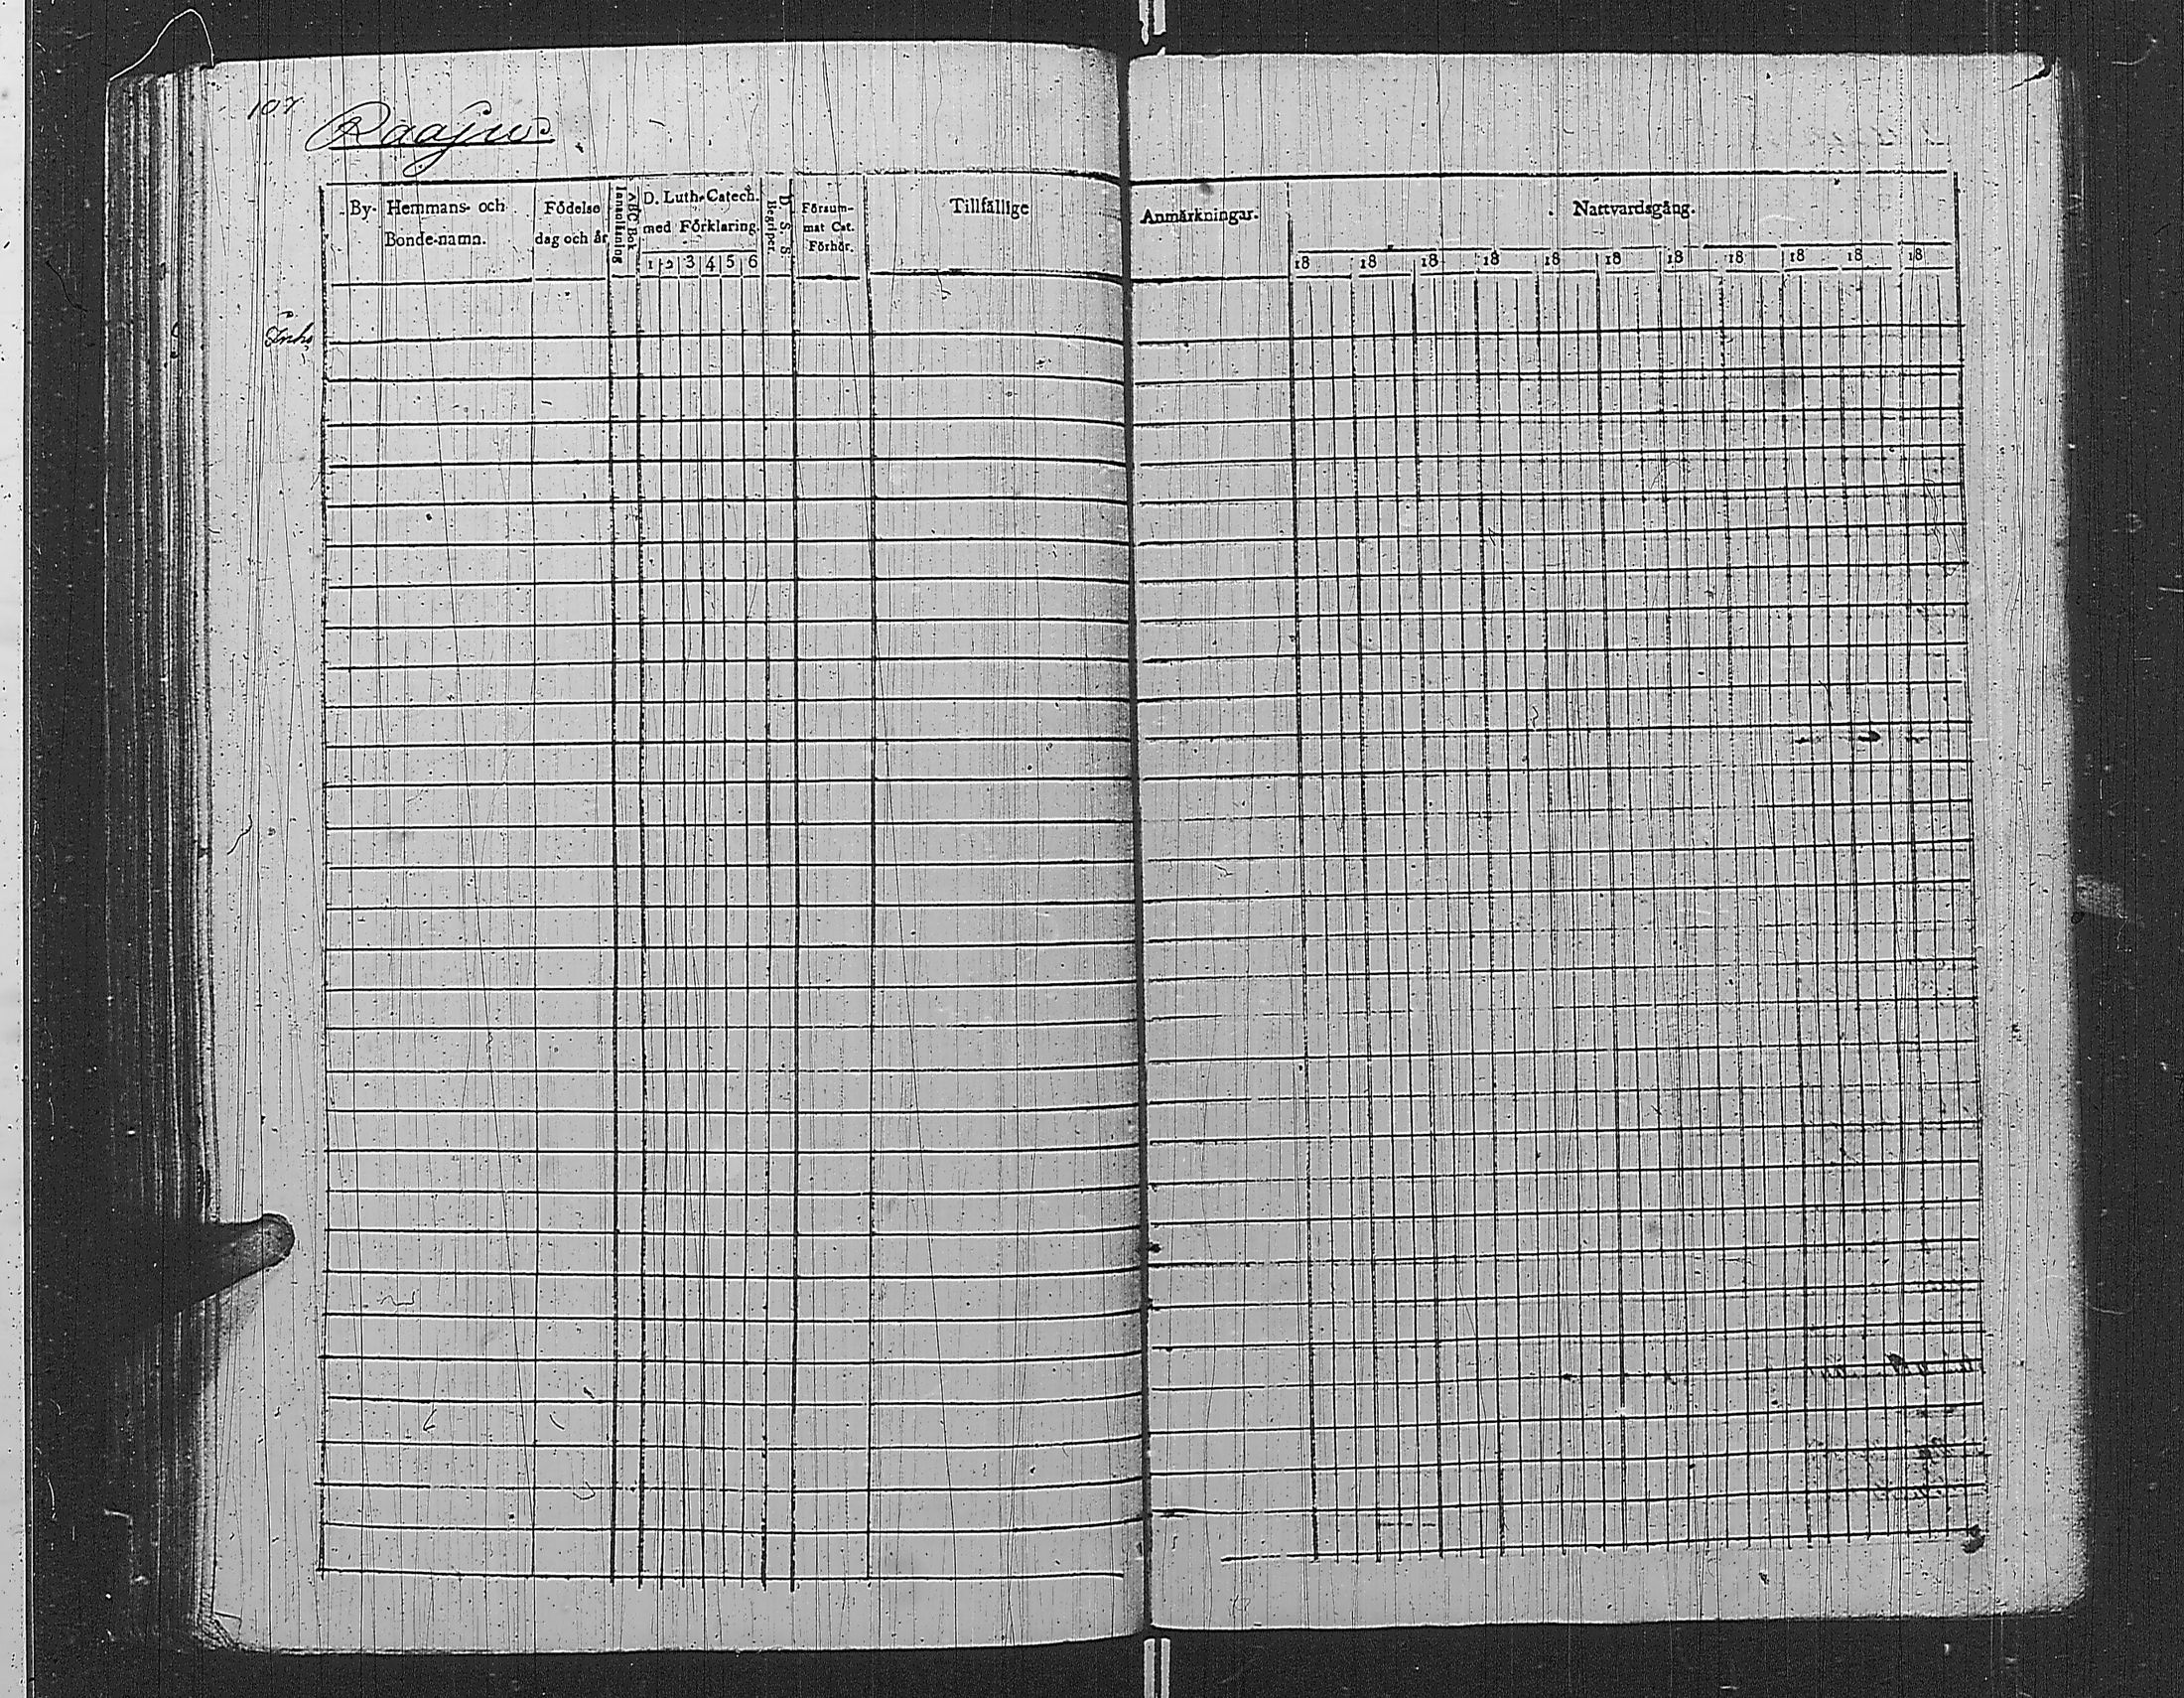 107
Raajus
Inhs
By- Hemmans- och Bonde-namn.
Födelse dag och år
ABC Bok Innanläsning
D. Luth. Catech. med Förklaring.
1 2 3 4 5 6
Begriper D. S. S.
Försum-
mat Cat.
Förhör.
Tillfällige
Anmärkningar.
Nattvardsgång.
18 18 18 18 18 18 18 18 18 18 18